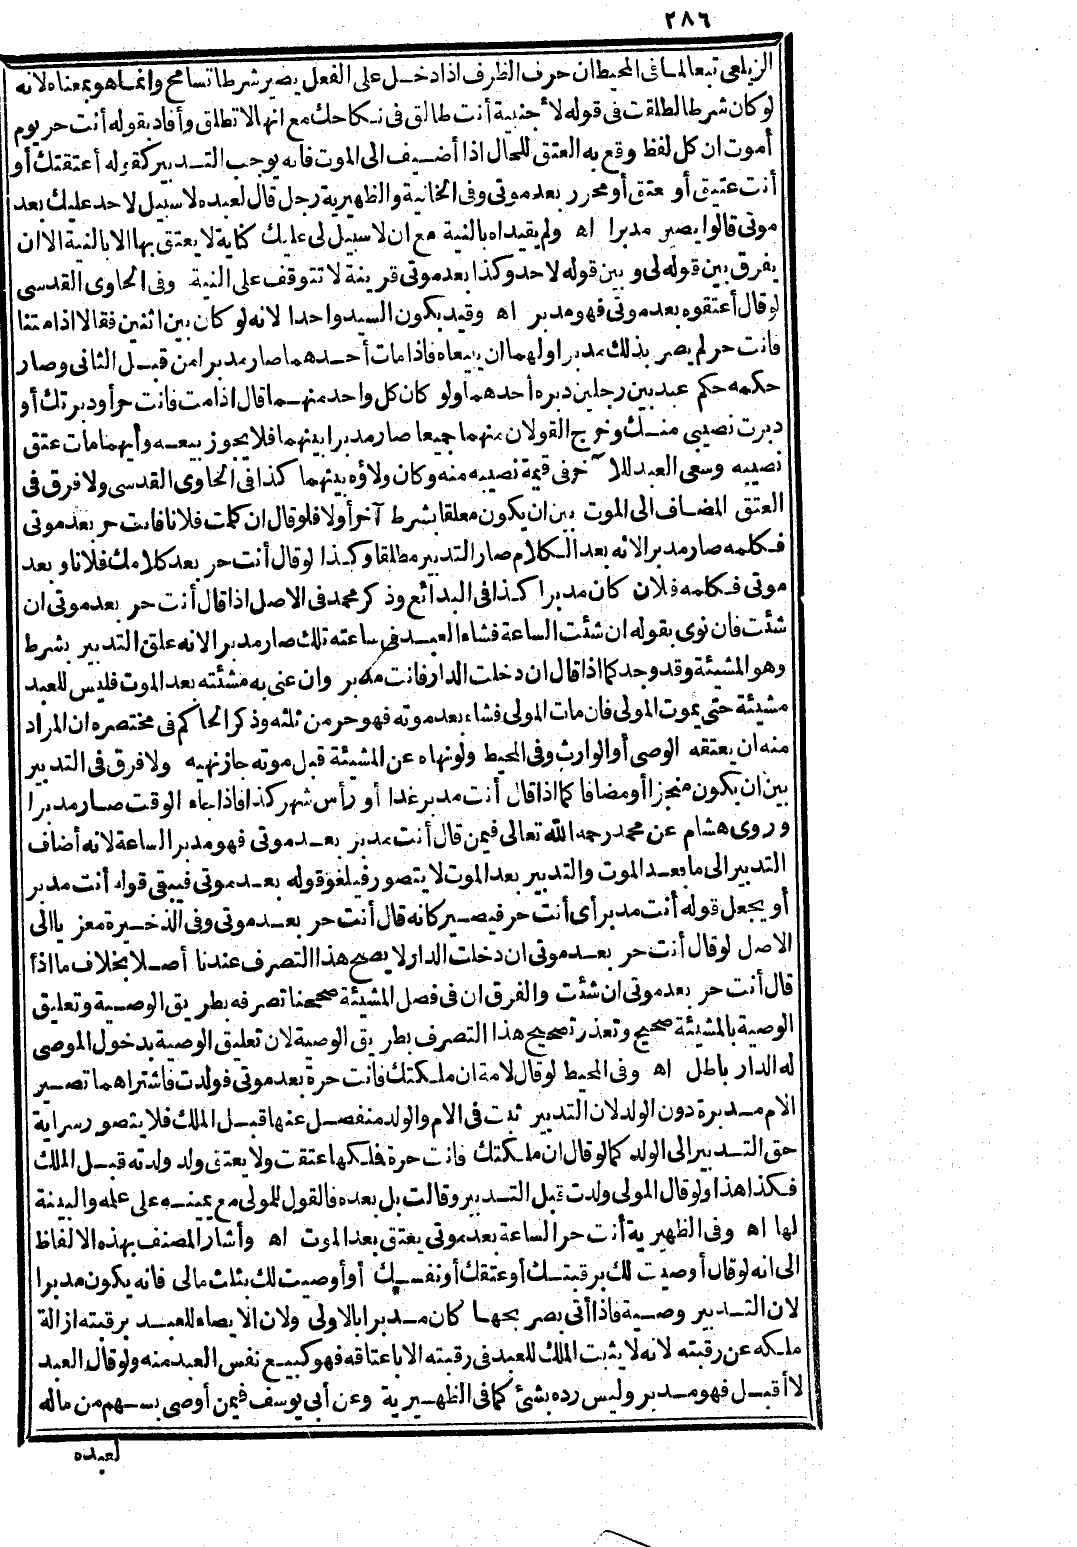 ٢٨٦
الزيلعى تبعا لما فى المحيط ان حرف الظرف اذا دخل على الفعل يصير شرطا تسامح وانما هو بمعناه لانه
لو كان شرطا لطلقت فى قوله لأجنبية أنت طالق فى نكاحك مع انها لا تطلق وأفاد بقوله أنت حر يوم
أموت ان كل لفظ وقع به العتق للحال اذا أضيف الى الموت فانه يوجب التدبير كقوله أعتقتك أو
أنت عتيق أو عتق أو محرر بعد موتى وفى الخانية والظهيرية رجل قال لعبده لا سبيل لاحد عليك بعد
موتى قالوا يصير مدبرا اه ولم يقيداه بالنية مع ان لا سبيل لى عليك كناية لا يعتق بها الا بالنية الا ان
يفرق بين قوله لى و بين قوله لاحد وكذا بعد موتى قرينة لا تتوقف على النية وفى الحاوى القدسى
لو قال أعتقوه بعد موتى فهو مدبر اه وقيد بكون السيد واحدا لانه لو كان بين اثنين فقالا اذا متنا
فانت حر لم يصر بذلك مدبرا ولهما ان يبيعاه فاذا مات أحدهما صار مدبرا من قبل الثانى وصار
حكمه حكم عبد بين رجلين دبره أحدهما ولو كان كل واحد منهما قال اذا مت فانت حر أو دبرتك أو
دبرت نصيبى منك وخرج القولان منهما جميعا صار مدبرا بينهما فلا يجوز بيعه وأيهما مات عتق
نصيبه وسعى العبد للآخر فى قيمة نصيبه منه وكان ولاؤه بينهما كذا فى الحاوى القدسى ولا فرق فى
العتق المضاف الى الموت بين ان يكون معلقا بشرط آخر أولا فلو قال ان كلمت فلانا فانت حر بعد موتى
فكلمه صار مدبرا لانه بعد الكلام صار التدبير مطلقا وكذا لو قال أنت حر بعد كلامك فلانا و بعد
موتى فكلمه فلان كان مدبرا كذا فى البدائع وذكر محمد فى الاصل اذا قال أنت حر بعد موتى ان
شئت فان نوى بقوله ان شئت الساعة فشاء العبد فى ساعته تلك صار مدبرا لانه علق التدبير بشرط
وهو المشيئة وقد وجد كما اذا قال ان دخلت الدار فانت مدبر وان عنى به مشئته بعد الموت فليس للعبد
مشيئة حتى يموت المولى فان مات المولى فشاء بعد موته فهو حر من ثلثه وذكر الحاكم فى مختصره ان المراد
منه ان يعتقه الوصى أو الوارث وفى المحيط ولو نهاه عن المشيئة قبل موته جاز نهيه ولا فرق فى التدبير
بين ان يكون منجزا أو مضافا كما اذا قال أنت مدبر غدا أو رأس شهر كذا فاذا جاء الوقت صار مدبرا
وروى هشام عن محمد رحمه الله تعالى فيمن قال أنت مدبر بعد موتى فهو مدبر الساعة لانه أضاف
التدبير الى ما بعد الموت والتدبير بعد الموت لا يتصور فيلغو قوله بعد موتى فيبقى قوله أنت مدبر
أو يجعل قوله أنت مدبر أى أنت حر فيصير كانه قال أنت حر بعد موتى وفى الذخيرة معزيا الى
الاصل لو قال أنت حر بعد موتى ان دخلت الدار لا يصح هذا التصرف عندنا أصلا بخلاف ما اذا
قال أنت حر بعد موتى ان شئت والفرق ان فى فصل المشيئة صححنا تصرفه بطريق الوصية وتعليق
الوصية بالمشيئة صحيح وتعذر تصحيح هذا التصرف بطريق الوصية لان تعليق الوصية بدخول الموصى
له الدار باطل اه وفى المحيط لو قال لامة ان ملكتك فانت حرة بعد موتى فولدت فاشتراهما تصير
الام مدبرة دون الولد لان التدبير ثبت فى الام والولد منفصل عنها قبل الملك فلا يتصور سراية
حق التدبير الى الولد كما لو قال ان ملكتك فانت حرة فملكها عتقت ولا يعتق ولد ولدته قبل الملك
فكذا هذا ولو قال المولى ولدت قبل التدبير وقالت بل بعده فالقول للمولى مع يمينه على علمه والبينة
لها اه وفى الظهيرية أنت حر الساعة بعد موتى يعتق بعد الموت اه وأشار المصنف بهذه الالفاظ
الى انه لو قال أوصيت لك برقبتك أو عتقك أو نفسك أو أوصيت لك بثلث مالى فانه يكون مدبرا
لان التدبير وصية فاذا أتى بصريحها كان مدبرا بالاولى ولان الايصاء للعبد برقبته ازالة
ملكه عن رقبته لانه لا يثبت الملك للعبد فى رقبته الا باعتاقه فهو كبيع نفس العبد منه ولو قال العبد
لا أقبل فهو مدبر وليس رده بشئ كما فى الظهيرية وعن أبى يوسف فيمن أوصى بسهم من ماله
لعبده